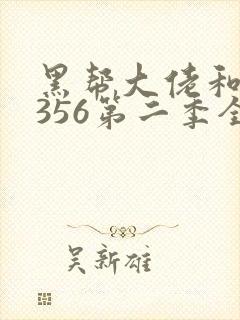 黑帮大佬和
356第二季全
吴新雄